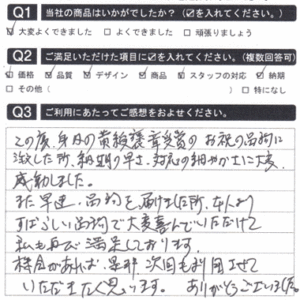 Q1 当社の商品はいかがでしたか？（☑を入れてください。）
☑ 大変よくできました □ よくできました □ 頑張りましょう
Q2 ご満足いただけた項目に☑を入れてください。（複数回答可）
☑ 価格 ☑ 品質 ☑ デザイン ☑ 商品 ☑ スタッフの対応 ☑ 納期
□ その他（ ） □ 特になし
Q3 ご利用にあたってご感想をおよせください。
この度、身内の黄綬褒章受賞のお祝の品物に
注文した所、納期の早さ、対応の細やかさに大変
感動しました。
また早速、品物を届けました所、本人より
すばらしい品物で大変喜んでいただけて
私も共に満足しております。
機会があれば、是非、次回も利用させて
いただきたく思います。 ありがとうございました。